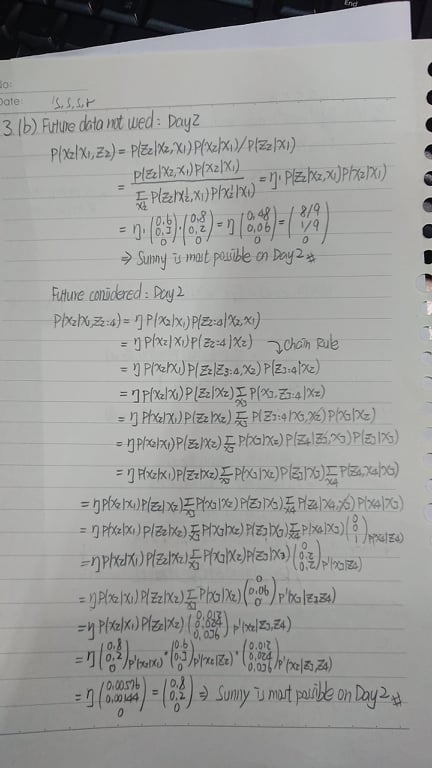 End
No:
Date: S, S, S, r
3. (b). Future data not used: Day2
P(X2|X1,Z2) = P(Z2|X2,X1)P(X2|X1)/P(Z2|X1)
= P(Z2|X2,X1)P(X2|X1) / Σ_X2' P(Z2|X2',X1)P(X2'|X1) = η·P(Z2|X2,X1)P(X2|X1)
= η·(0.6 0.3 0)·(0.8 0.2 0) = η(0.48 0.06 0) = (8/9 1/9 0)
⇒ Sunny is most possible on Day2 #
Future considered: Day2
P(X2|X1,Z2:4) = ηP(X2|X1)P(Z2:4|X2,X1)
= ηP(X2|X1)P(Z2:4|X2) Chain Rule
= ηP(X2|X1)P(Z2|Z3:4,X2)P(Z3:4|X2)
= ηP(X2|X1)P(Z2|X2)Σ_X3 P(X3,Z3:4|X2)
= ηP(X2|X1)P(Z2|X2)Σ_X3 P(Z3:4|X3,X2)P(X3|X2)
= ηP(X2|X1)P(Z2|X2)Σ_X3 P(X3|X2)P(Z4|Z3,X3)P(Z3|X3)
= ηP(X2|X1)P(Z2|X2)Σ_X3 P(X3|X2)P(Z3|X3)Σ_X4 P(Z4,X4|X3)
= ηP(X2|X1)P(Z2|X2)Σ_X3 P(X3|X2)P(Z3|X3)Σ_X4 P(Z4|X4,X3)P(X4|X3)
= ηP(X2|X1)P(Z2|X2)Σ_X3 P(X3|X2)P(Z3|X3)Σ_X4 P(X4|X3)(0 0 1)P(X4|Z4)
= ηP(X2|X1)P(Z2|X2)Σ_X3 P(X3|X2)P(Z3|X3)(0 0.2 0.2)P'(X3|Z4)
= ηP(X2|X1)P(Z2|X2)Σ_X3 P(X3|X2)(0 0.06 0)P'(X3|Z3Z4)
= ηP(X2|X1)P(Z2|X2)(0.012 0.024 0.036)P'(X2|Z3,Z4)
= η(0.8 0.2 0)P'(X2|X1)*(0.6 0.3 0)P'(X2|Z2)*(0.012 0.024 0.036)P'(X2|Z3,Z4)
= η(0.00576 0.00144 0) = (0.8 0.2 0) ⇒ Sunny is most possible on Day2 #